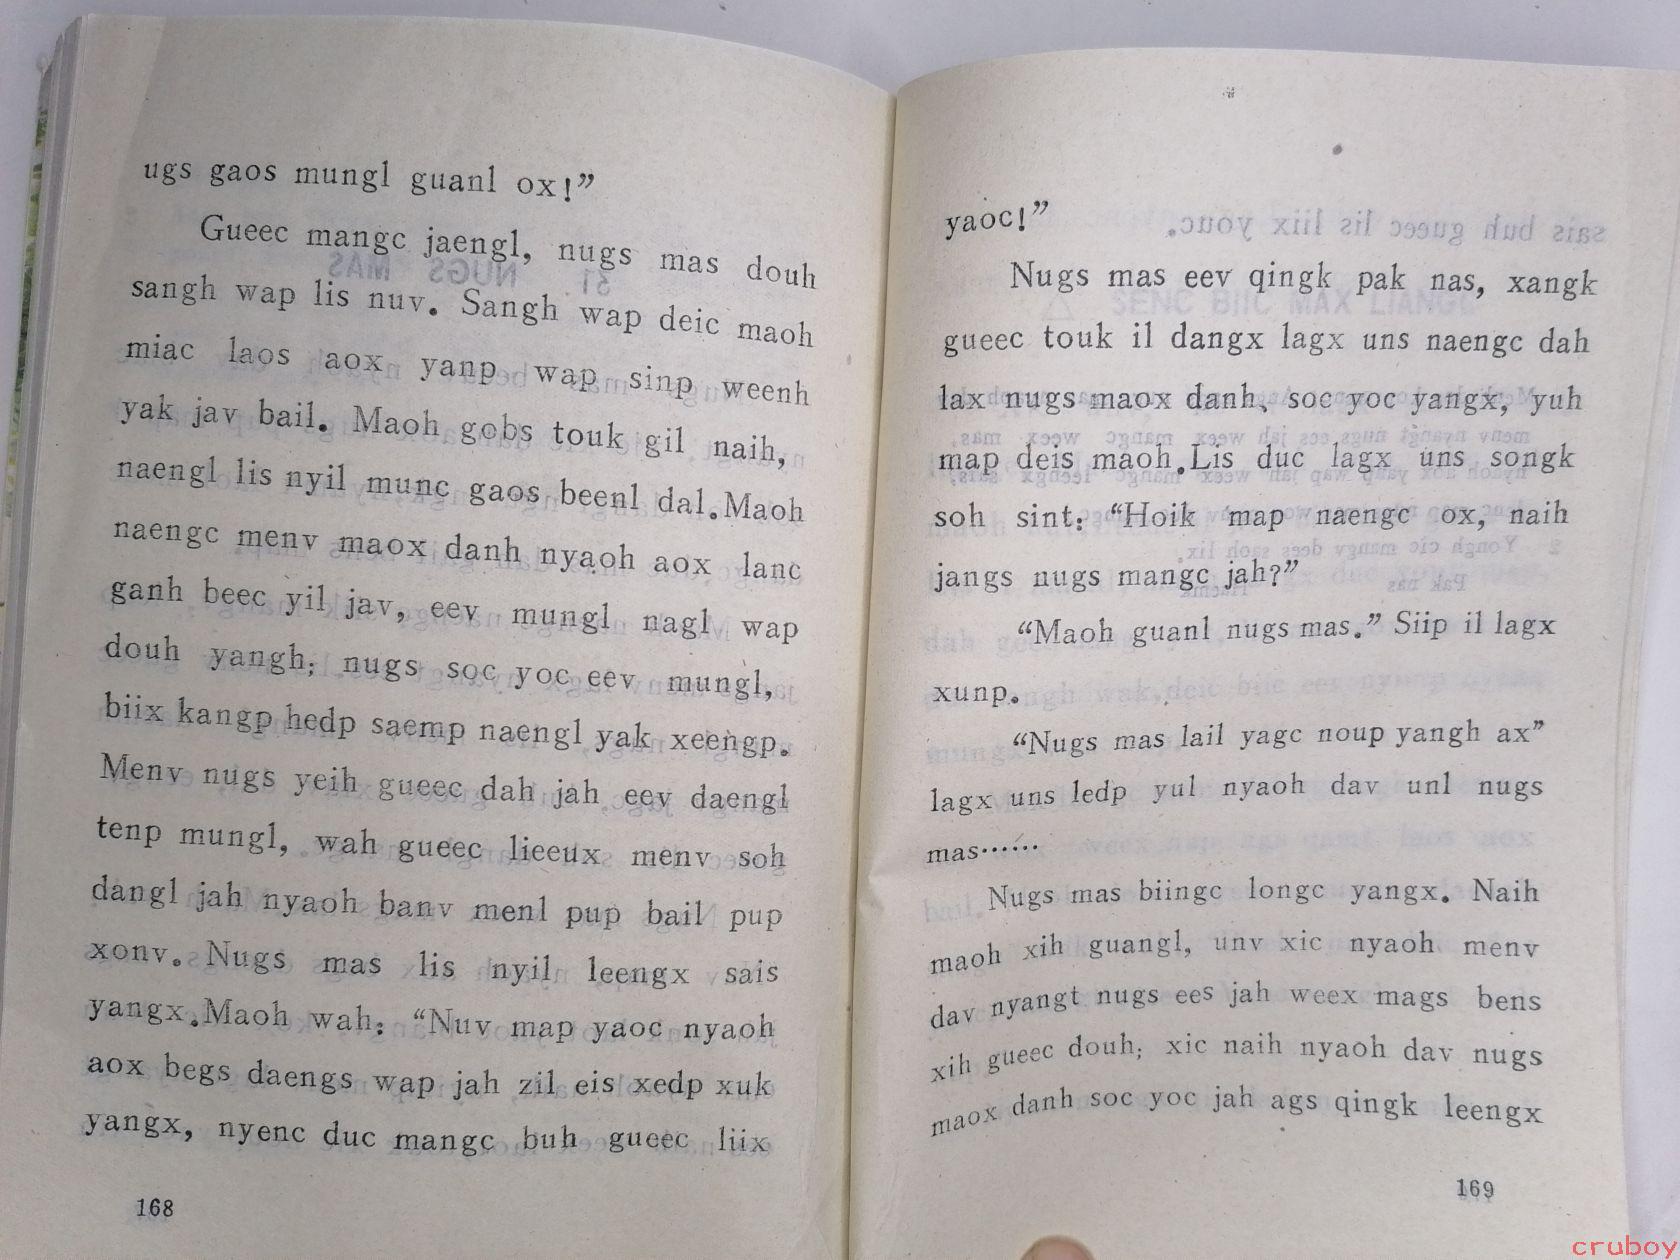 ugs gaos mungl guanl ox!”
Gueec mangc jaengl, nugs mas douh
sangh wap lis nuv. Sangh wap deic maoh
miac laos aox yanp wap sinp weenh
yak jav bail. Maoh gobs touk gil naih,
naengl lis nyil munc gaos beenl dal. Maoh
naengc menv maox danh nyaoh aox lanc
ganh beec yil jav, eev mungl nagl wap
douh yangh; nugs soc yoc eev mungl,
biix kangp hedp saemp naengl yak xeengp.
Menv nugs yeih gueec dah jah eev daengl
tenp mungl, wah gueec lieeux menv soh
dangl jah nyaoh banv menl pup bail pup
xonv. Nugs mas lis nyil leengx sais
yangx. Maoh wah: “Nuv map yaoc nyaoh
aox begs daengs wap jah zil eis xedp xuk
yangx, nyenc duc mangc buh gueec liix
168
yaoc!”
Nugs mas eev qingk pak nas, xangk
gueec touk il dangx lagx uns naengc dah
lax nugs maox danh、soc yoc yangx, yuh
map deis maoh. Lis duc lagx uns songk
soh sint: “Hoik map naengc ox, naih
jangs nugs mangc jah?”
“Maoh guanl nugs mas.” Siip il lagx
xunp.
“Nugs mas lail yagc noup yangh ax”
lagx uns ledp yul nyaoh dav unl nugs
mas……
Nugs mas biingc longc yangx. Naih
maoh xih guangl, unv xic nyaoh menv
dav nyangt nugs ees jah weex mags bens
xih gueec douh; xic naih nyaoh dav nugs
maox danh soc yoc jah ags qingk leengx
169
cruboy